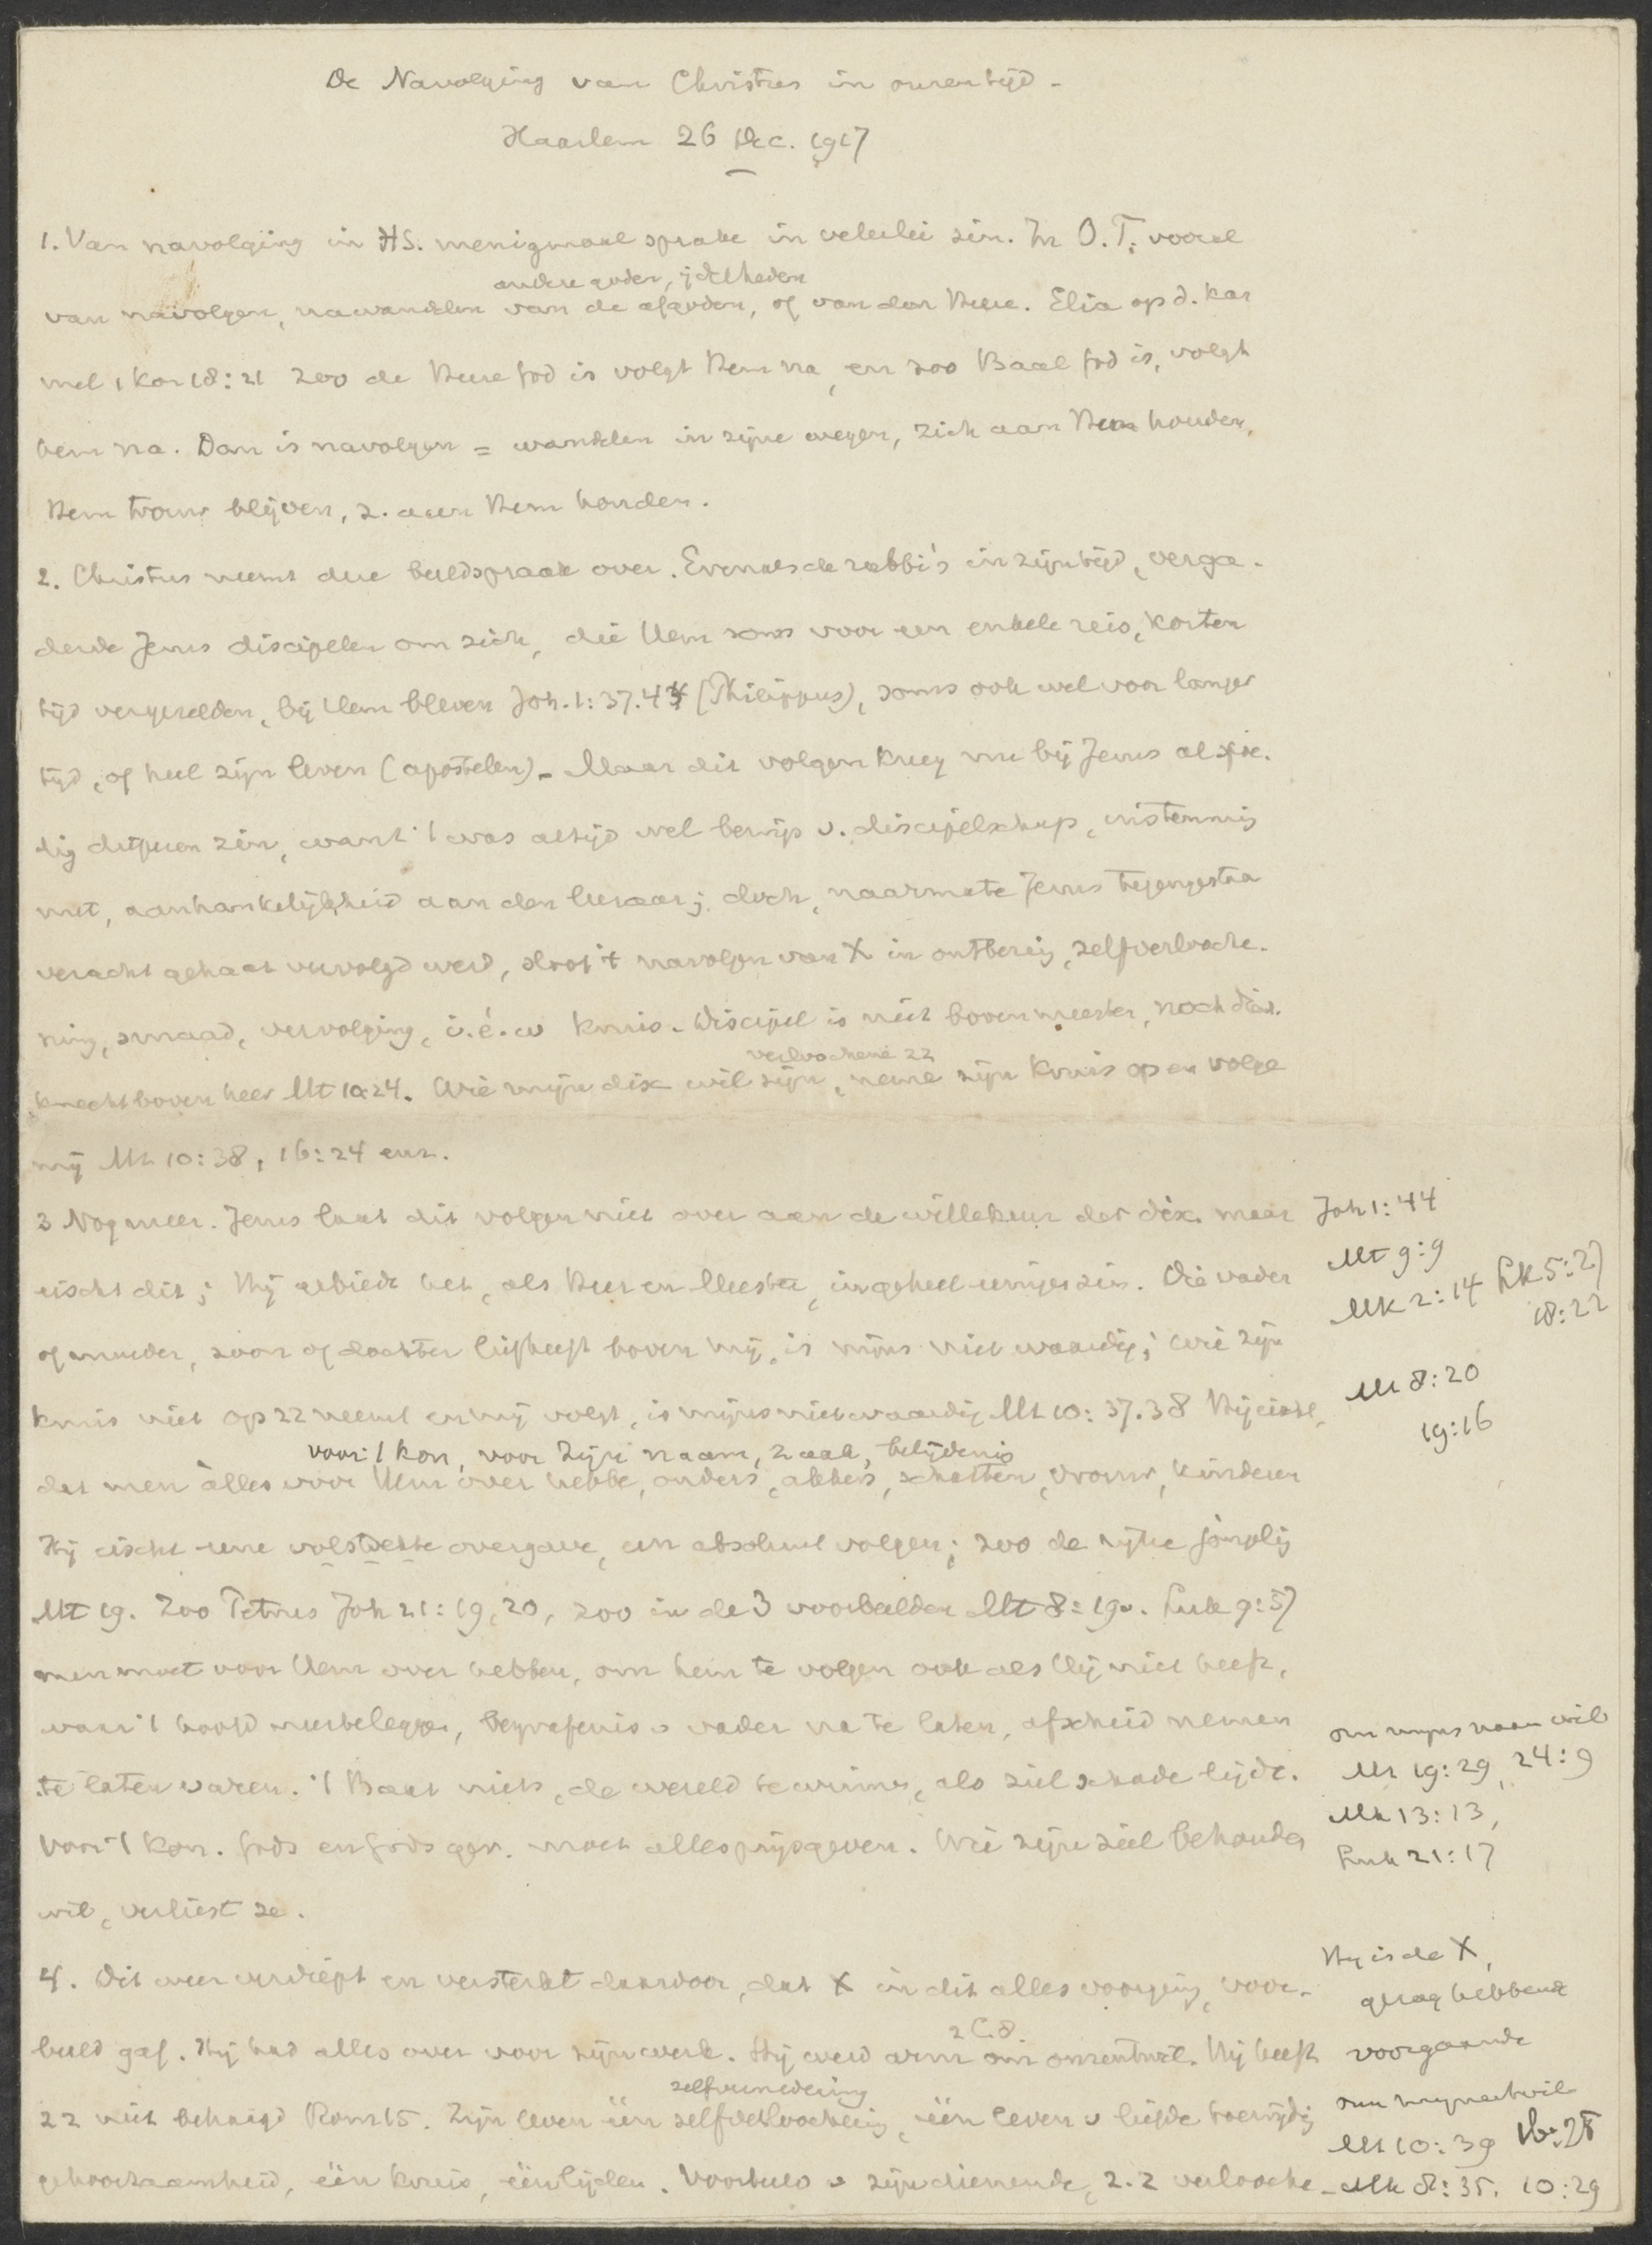 De Navolging van Christus in onzen tijd -
Haarlem 26 Dec. 1917
1. Van navolging in HS. menigmaal sprake in velerlei zin. In O.T. vooral
andere goden, ijdelheden
van navolgen, nawandelen van de afgoden, of van den Heere. Elia op d. Kar
mel 1 Kon 18:21 zoo de Heere God is volgt Hem na, en zoo Baal God is, volgt
hem na. Dan is navolgen = wandelen in zijne wegen, zich aan Hem houden,
Hem trouw blijven, z. aan Hem houden.
2. Christus neemt deze beeldspraak over. Evenals de rabbi's in zijn tijd, verga-
derde Jezus discipelen om zich, die Hem soms voor een enkele reis, korten
tijd vergezelden, bij Hem bleven Joh. 1:37.44 (Philippus), soms ook wel voor langer
tijd, of heel zijn leven (apostelen). Maar dit volgen kreeg nu bij Jezus al spoe-
dig dieperen zin, want 't was altijd wel bewijs v. discipelschap, instemming
met, aanhankelijkheid aan den leeraar; doch, naarmate Jezus tegengestaan
veracht gehaat vervolgd werd, sloot 't navolgen van X in ontbering, zelfverlooche-
ning, smaad, vervolging, i.é.w kruis. Discipel is niet boven meester, noch dienst-
verloochene zz
knecht boven heer Mt 10:24. Wie mijn disc wil zijn, neme zijn kruis op en volge
mij Mt 10:38, 16:24 enz.
3 Nog meer. Jezus laat dit volgen niet over aan de willekeur der disc. maar
Joh 1:44
eischt dit; Hij gebiedt het, als Heer en Meester, in geheel eenigen zin. Die vader
Mt 9:9
Mk 2:14 Lk 5:27
18:22
of moeder, zoon of dochter liefheeft boven mij, is mijns niet waardig; wie zijn
kruis niet op zz neemt en mij volgt, is mijns niet waardig Mt 10:37.38 Hij eischt,
Mt 8:20
19:16
voor 't kon, voor Zijn naam, zaak, belijdenis
dat men alles voor Hem over hebbe, ouders, akkers, schatten, vrouw, kinderen
Hij eischt eene volstrekte overgave, een absoluut volgen; zoo de rijke jongeling
Mt 19. Zoo Petrus Joh 21:19,20, zoo in de 3 voorbeelden Mt 8:19v. Luk 9:57
men moet voor Hem over hebben, om hem te volgen ook als Hij niet heeft,
waar 't hoofd neerteleggen, begrafenis v vader na te laten, afscheid nemen
te laten varen. 't Baat niets, de wereld te winnen, als ziel schade lijdt.
om mijns naams wil
Mt 19:29, 24:9
Mk 13:13,
Luk 21:17
Voor 't kon. Gods en Gods ger. moet alles prijsgeven. Wie zijne ziel behouden
wil, verliest ze.
4. Dit weer verdiept en versterkt daardoor, dat X in dit alles voorging, voor-
Hij is de X,
gezag hebbend
voorgaande
2 C. 8.
beeld gaf. Hij had alles over voor zijn werk. Hij werd arm om onzentwil. Hij heeft
zelfvernedering
zz niet behaagd Rom 15. Zijn leven één zelfverloochening, één leven v liefde toewijding
om mijnentwil
Mt 10:39 16:25
gehoorzaamheid, één kruis, één lijden. Voorbeeld v zijn dienende, z.z verlooche-
Mk 8:35. 10:29